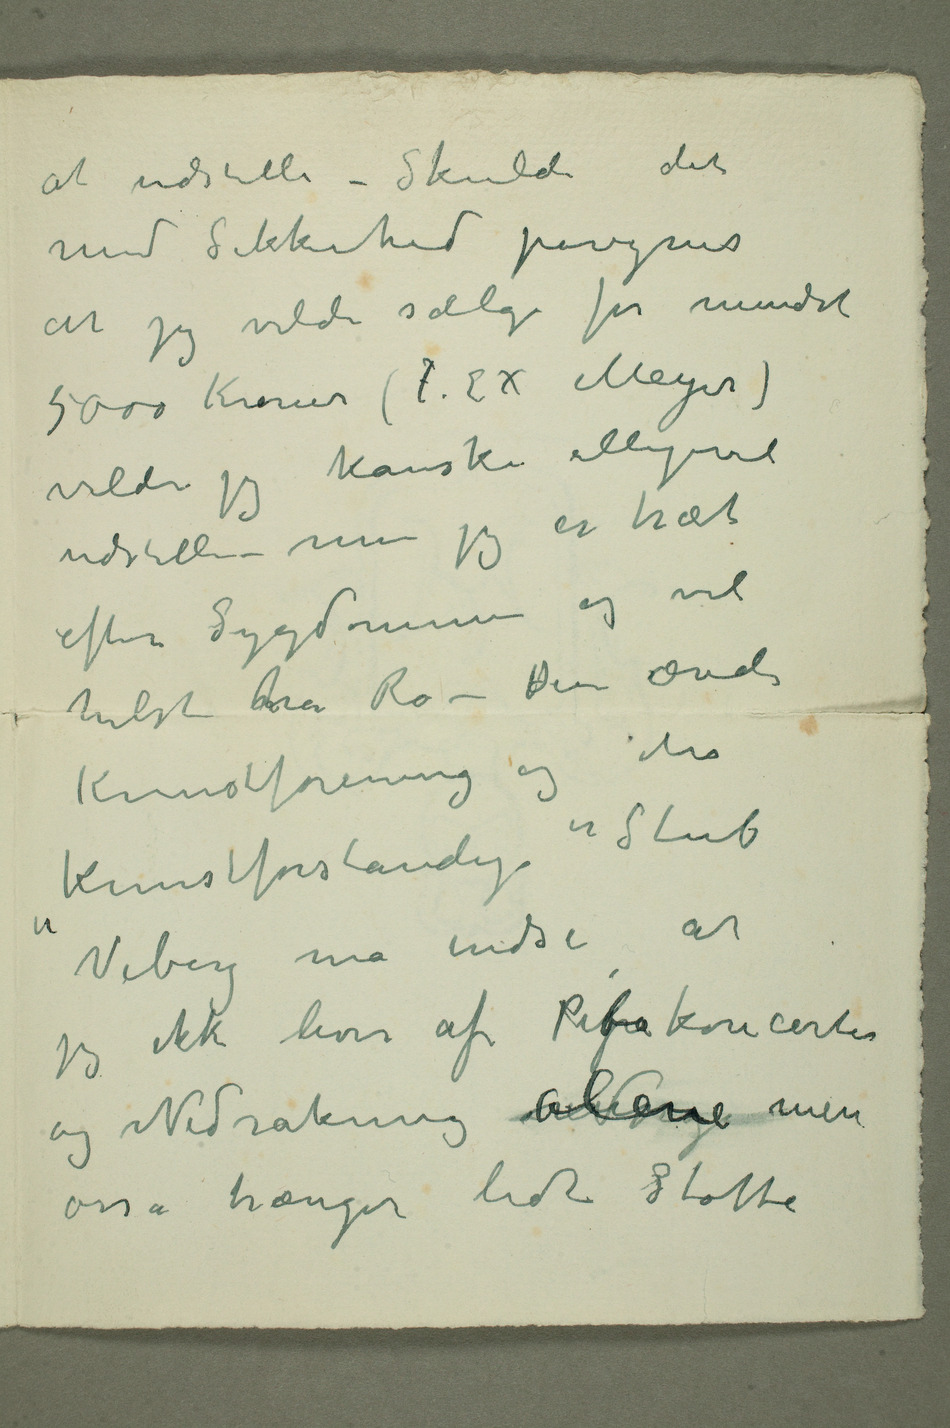 at udstille – Skulde det
med Sikkerhed paregnes
at jeg vilde sælge for mindst
5000 Kroner (T. EX Meyer)
vilde jeg kanske alligevel
udstille – men jeg er træt
efter Sygdommen og vil
helst ha Ro – Den ærede
Kunstforening og dens
Kunstforstandige " Stub
" Viberg må indse at
jeg ikke lever af Pibekoncerter
og Nedrakning alene men
osså trænger lidt Støtte